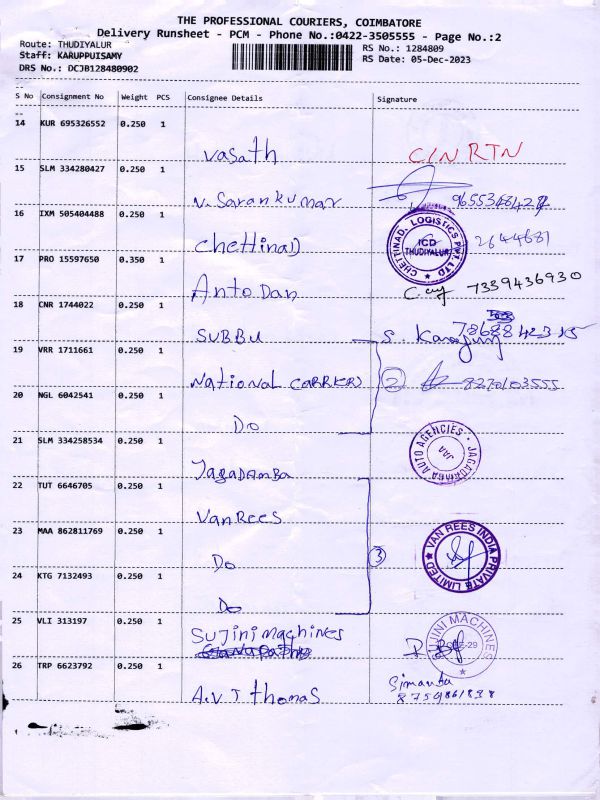 THE PROFESSIONAL COURIERS, COIMBATORE
Delivery Runsheet - PCM - Phone No.:0422-3505555 - Page No.:2
Route: THUDIYALUR
RS No.: 1284809
Staff: KARUPPUISAMY
RS Date: 05-Dec-2023
DRS No.: DCJB128480902
S No Consignment No Weight PCS Consignee Details Signature
14 KUR 695326552 0.250 1
Vasath C/N RTN
15 SLM 334280427 0.250 1
N. Saran kumar
16 IXM 505404488 0.250 1
Chettinad 2644681
CHETTINAD LOGISTICS PVT. LTD
ICD
THUDIYALUR
17 PRO 15597650 0.350 1
Anto Dan 7359436930
18 CNR 1744022 0.250 1
SUBBU S.
19 VRR 1711661 0.250 1
National CARRIER 2 8270103555
20 NGL 6042541 0.250 1
Do
21 SLM 334258534 0.250 1
Jagadamba
JAGADAMBA AUTO AGENCIES
JAA
22 TUT 6646705 0.250 1
Van Rees
23 MAA 862811769 0.250 1
Do 3
VAN REES INDIA PRIVATE LIMITED
24 KTG 7132493 0.250 1
Do
25 VLI 313197 0.250 1
Sujini Machines
SUJINI MACHINES
26 TRP 6623792 0.250 1
A.V.J thomas